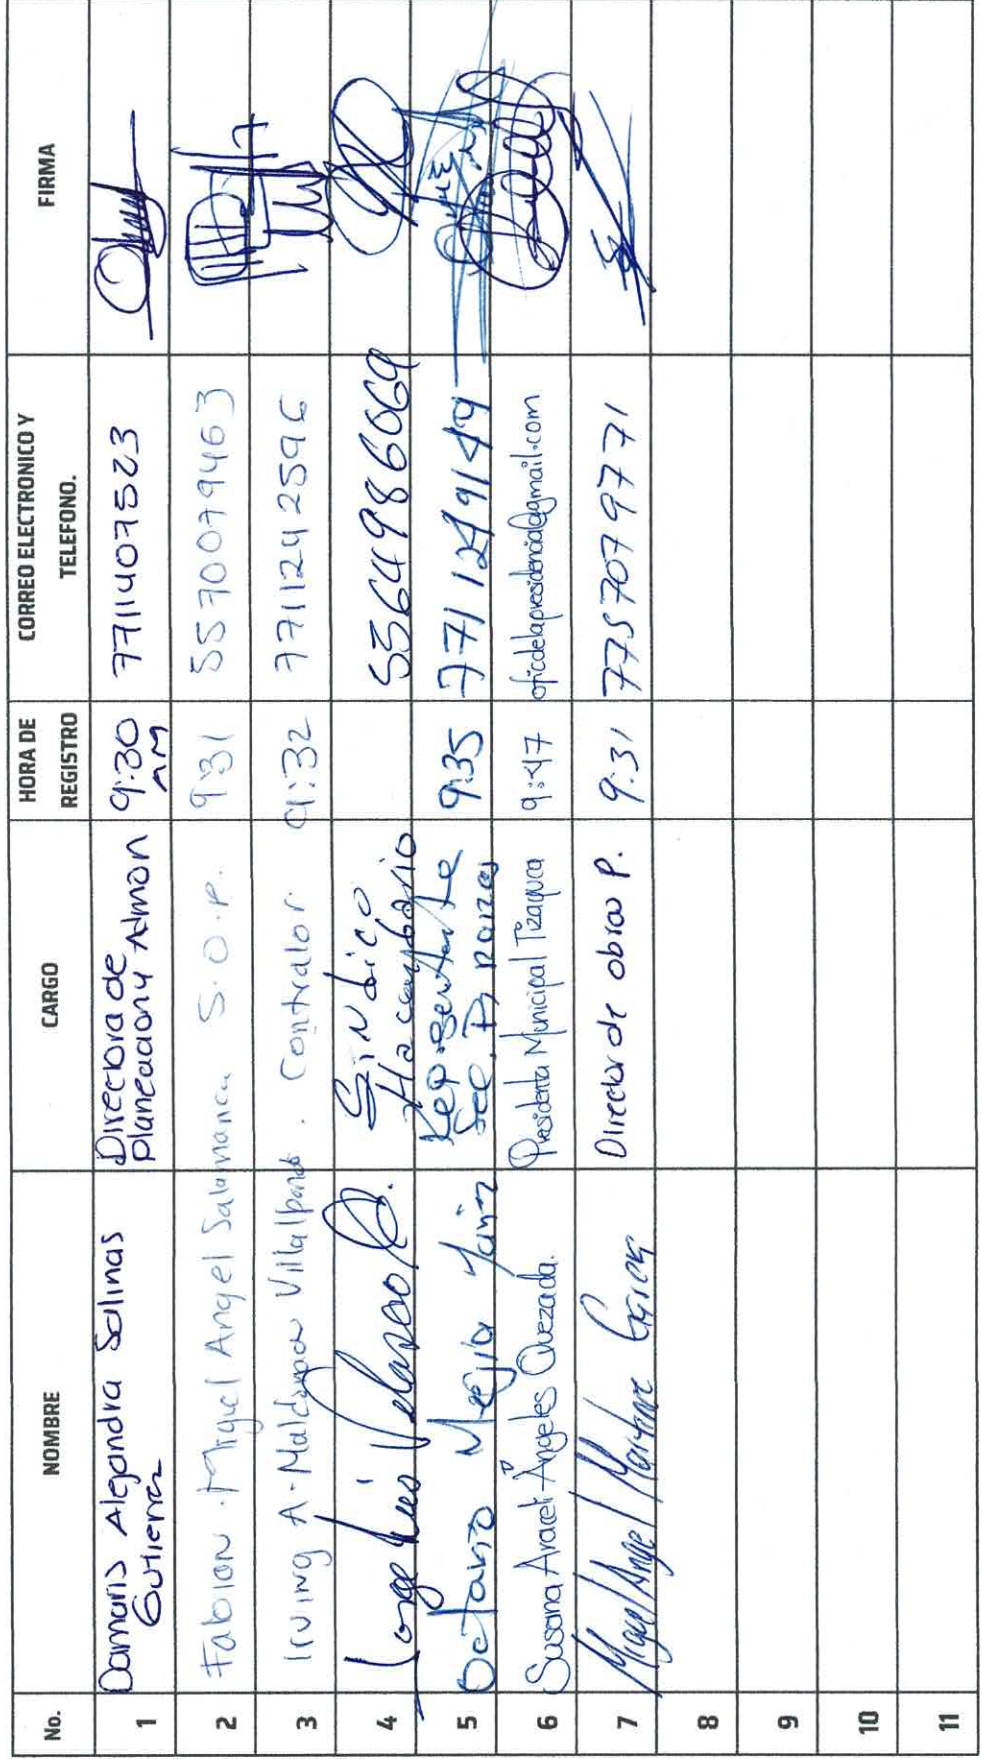 No. NOMBRE CARGO HORA DE REGISTRO CORREO ELECTRONICO Y TELEFONO. FIRMA
1 Damaris Alejandra Salinas Gutierrez Directora de planeación y Admon 9:30 AM 7711407523
2 Fabian Miguel Angel Salamanca S.O.P. 9:31 5570079463
3 Irving A. Maldonado Villalpando. Contralor 9:32 7711242596
4 Jorge Luis Velasco Síndico Hacendario 5364986069
5 Octavio Mejía Representante Sec. 9:35
6 Susana Araceli Ángeles Quezada. Presidenta Municipal Tizayuca 9:47 oficdelapresidencia@gmail.com
7 Miguel Angel Martinez Garcia Director de obras P. 9:31 7757079771
8
9
10
11